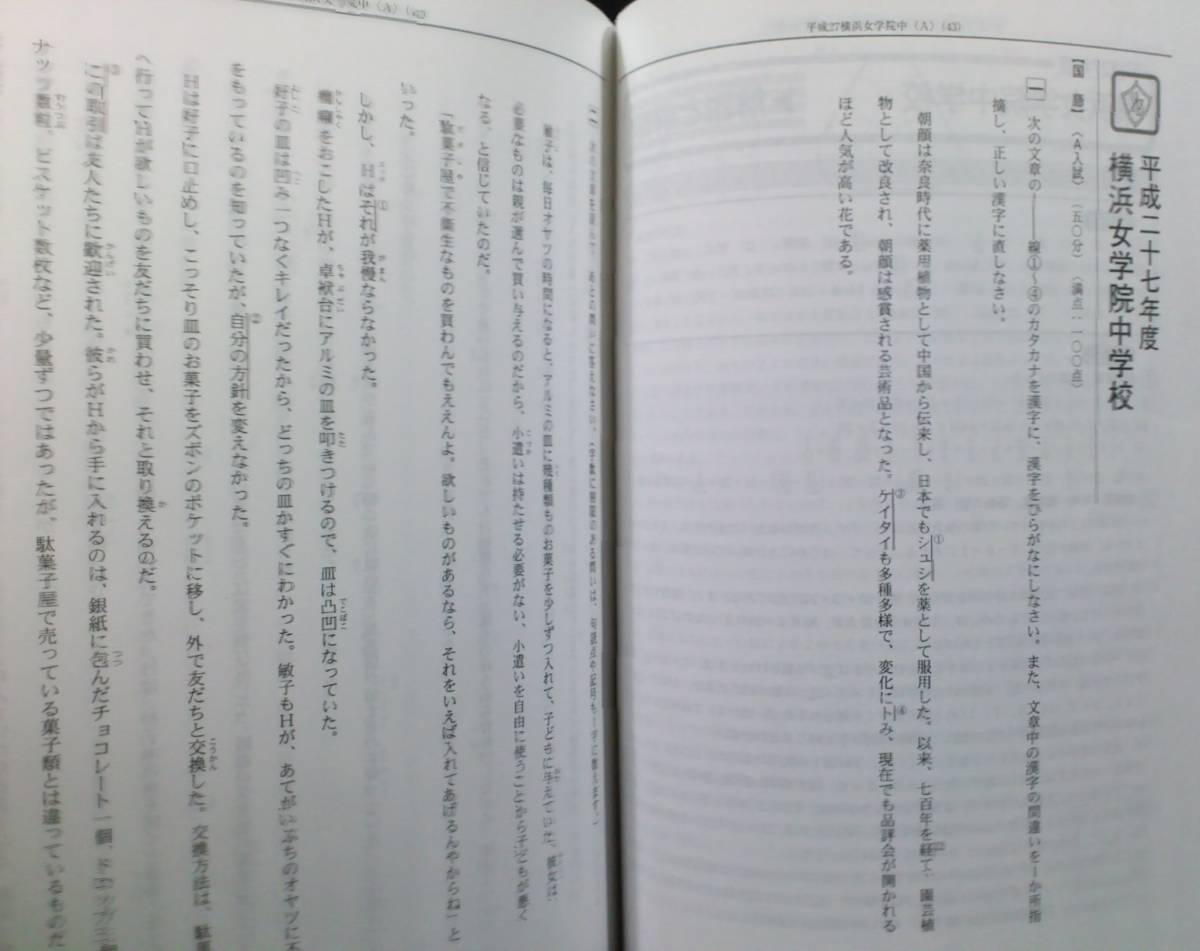 平成27横浜女学院中〈A〉(43)
平成二十七年度
横浜女学院中学校
【国語】〈A入試〉（五〇分）〈満点：一〇〇点〉
一 次の文章の――線①～④のカタカナを漢字に、漢字をひらがなにしなさい。また、文章中の漢字の間違いを一か所指
摘し、正しい漢字に直しなさい。
朝顔は奈良時代に薬用植物として中国から伝来し、日本でも①シュシを薬として服用した。以来、七百年を②経て、園芸植
物として改良され、朝顔は感賞される芸術品となった。③ケイタイも多種多様で、変化に④トみ、現在でも品評会が開かれる
ほど人気が高い花である。
学院中〈A〉(42)
敏子は、毎日オヤツの時間になると、アルミの皿に幾種類ものお菓子を少しずつ入れて、子どもに与えていた。彼女は、
必要なものは親が選んで買い与えるのだから、小遣いは持たせる必要がない、小遣いを自由に使うことから子どもが悪く
なる、と信じていたのだ。
「駄菓子屋で不衛生なものを買わんでもええんよ。欲しいものがあるなら、それをいえば入れてあげるんやからね」と
いった。
しかし、Hは①それが我慢ならなかった。
癇癪をおこしたHが、卓袱台にアルミの皿を叩きつけるので、皿は凸凹になっていた。
好子の皿は凹み一つなくキレイだったから、どっちの皿かすぐにわかった。敏子もHが、あてがいぶちのオヤツに不
をもっているのを知っていたが、②自分の方針を変えなかった。
Hは好子に口止めし、こっそり皿のお菓子をズボンのポケットに移し、外で友だちと交換した。交換方法は、駄菓
へ行ってHが欲しいものを友だちに買わせ、それと取り換えるのだ。
③この取引は友人たちに歓迎された。彼らがHから手に入れるのは、銀紙に包んだチョコレート一個、ドロップ三
ナッツ数粒、ビスケット数枚など、少量ずつではあったが、駄菓子屋で売っている菓子類とは違っているものた